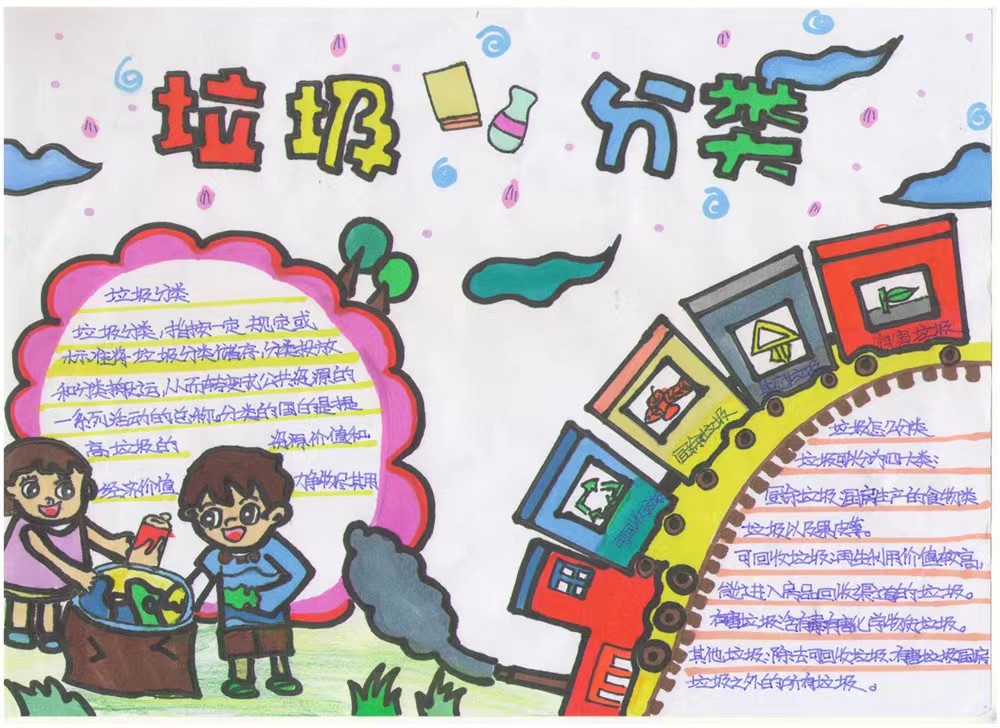 垃圾分类
垃圾分类
垃圾分类,指按一定规定或
标准将垃圾分类储存,分类投放
和分类搬运,从而转变成公共资源的
一系列活动的总称。分类的目的是提
高垃圾的 资源价值和
经济价值 力争物尽其用
有害垃圾
其他垃圾
厨余垃圾
可回收垃圾
垃圾怎么分类
垃圾可分为四大类:
厨余垃圾:厨房生产的食物类
垃圾以及果皮等。
可回收垃圾:再生利用价值较高,
能进入废品回收渠道的垃圾。
有害垃圾含有毒有害化学物质垃圾。
其他垃圾:除去可回收垃圾、有害垃圾厨房
垃圾之外的所有垃圾。